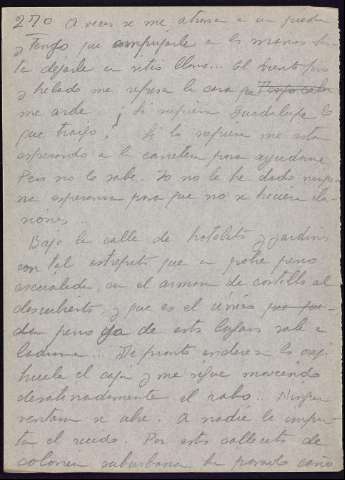 270 A veces se me atranca en un piedra
y tengo que empujarle a las manos has-
ta dejarle en sitio llano... El viento fino
y helado me repasa la cara
me arde. ¡Si supiera Guadalupe lo
que traigo! Si lo supiera me esta
esperando a la carretera para ayudarme
Pero no lo sabe. Yo no le he dado ningu-
na esperanza para que no se hiciera ilu-
siones...
Bajo la calle de hotelitos y jardines
con tal estrépito que un pobre perro
escuálido, con el armón de costillas al
descubierto, y que es el único
perro de estos lugares sale a
ladrarme... De pronto endereza las
el cojo y me sigue moviendo
desatinadamente el rabo... Ninguna
ventana se abre. A nadie le impor-
ta el ruido. Por estas callecitas de
colonia suburbana ha pasado